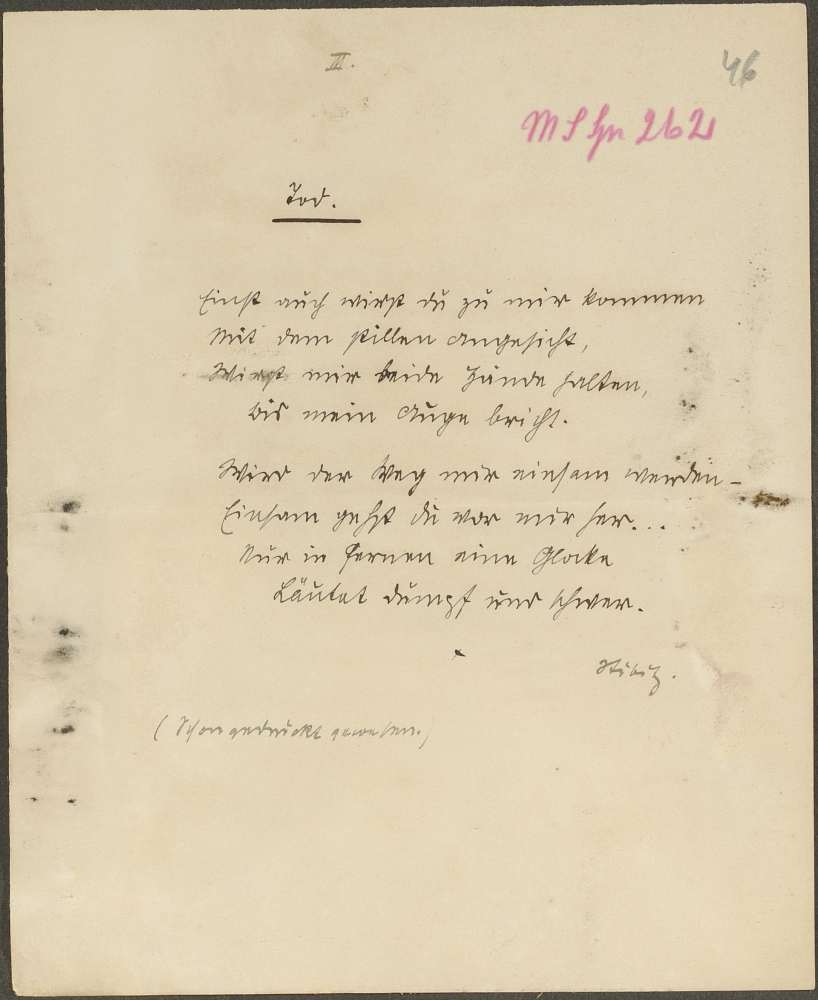 III.
46
Tod.
Einst auch wirst du zu mir kommen
Mit dem stillen Angesicht,
Wirst mir beide Hände halten,
Bis mein Auge bricht.
Wird der Weg mir einsam werden –
Einsam gehst du vor mir her...
Nur in Fernen eine Glocke
Läutet dumpf und schwer.
(Schon gedruckt gewesen.)